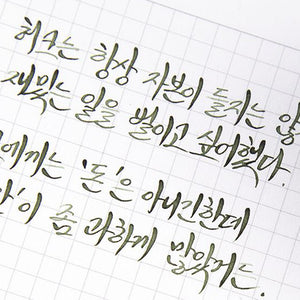 허스는 항상 자본이 들지는 않
재밌는 일을 벌이고 싶어했다.
에게는 '돈'은 아니긴한데
이 좀 과하게 많았거든.